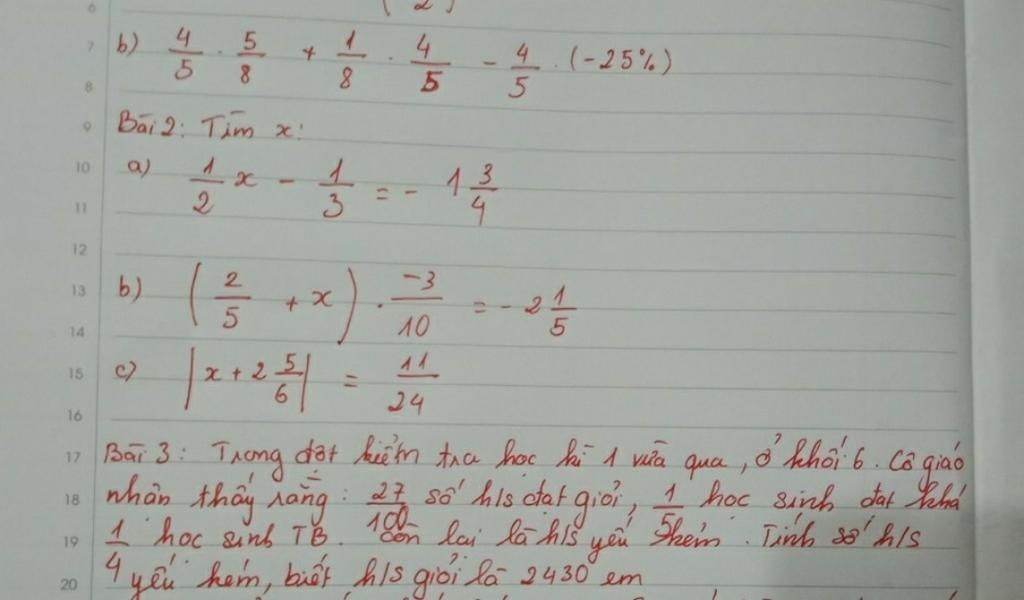 6
7 b) 4/5 . 5/8 + 1/8 . 4/5 - 4/5 . (-25%)
8
9 Bài 2: Tìm x:
10 a) 1/2 x - 1/3 = - 1 3/4
11
12
13 b) (2/5 + x) . -3/10 = - 2 1/5
14
15 c) |x + 2 5/6| = 11/24
16
17 Bài 3: Trong đợt kiểm tra học kì 1 vừa qua, ở khối 6. Cô giáo
18 nhận thấy rằng: 27/100 số h/s đạt giỏi, 1/5 học sinh đạt khá
19 1/4 học sinh TB. Còn lại là h/s yếu kém. Tính số h/s
20 yếu kém, biết h/s giỏi là 2430 em